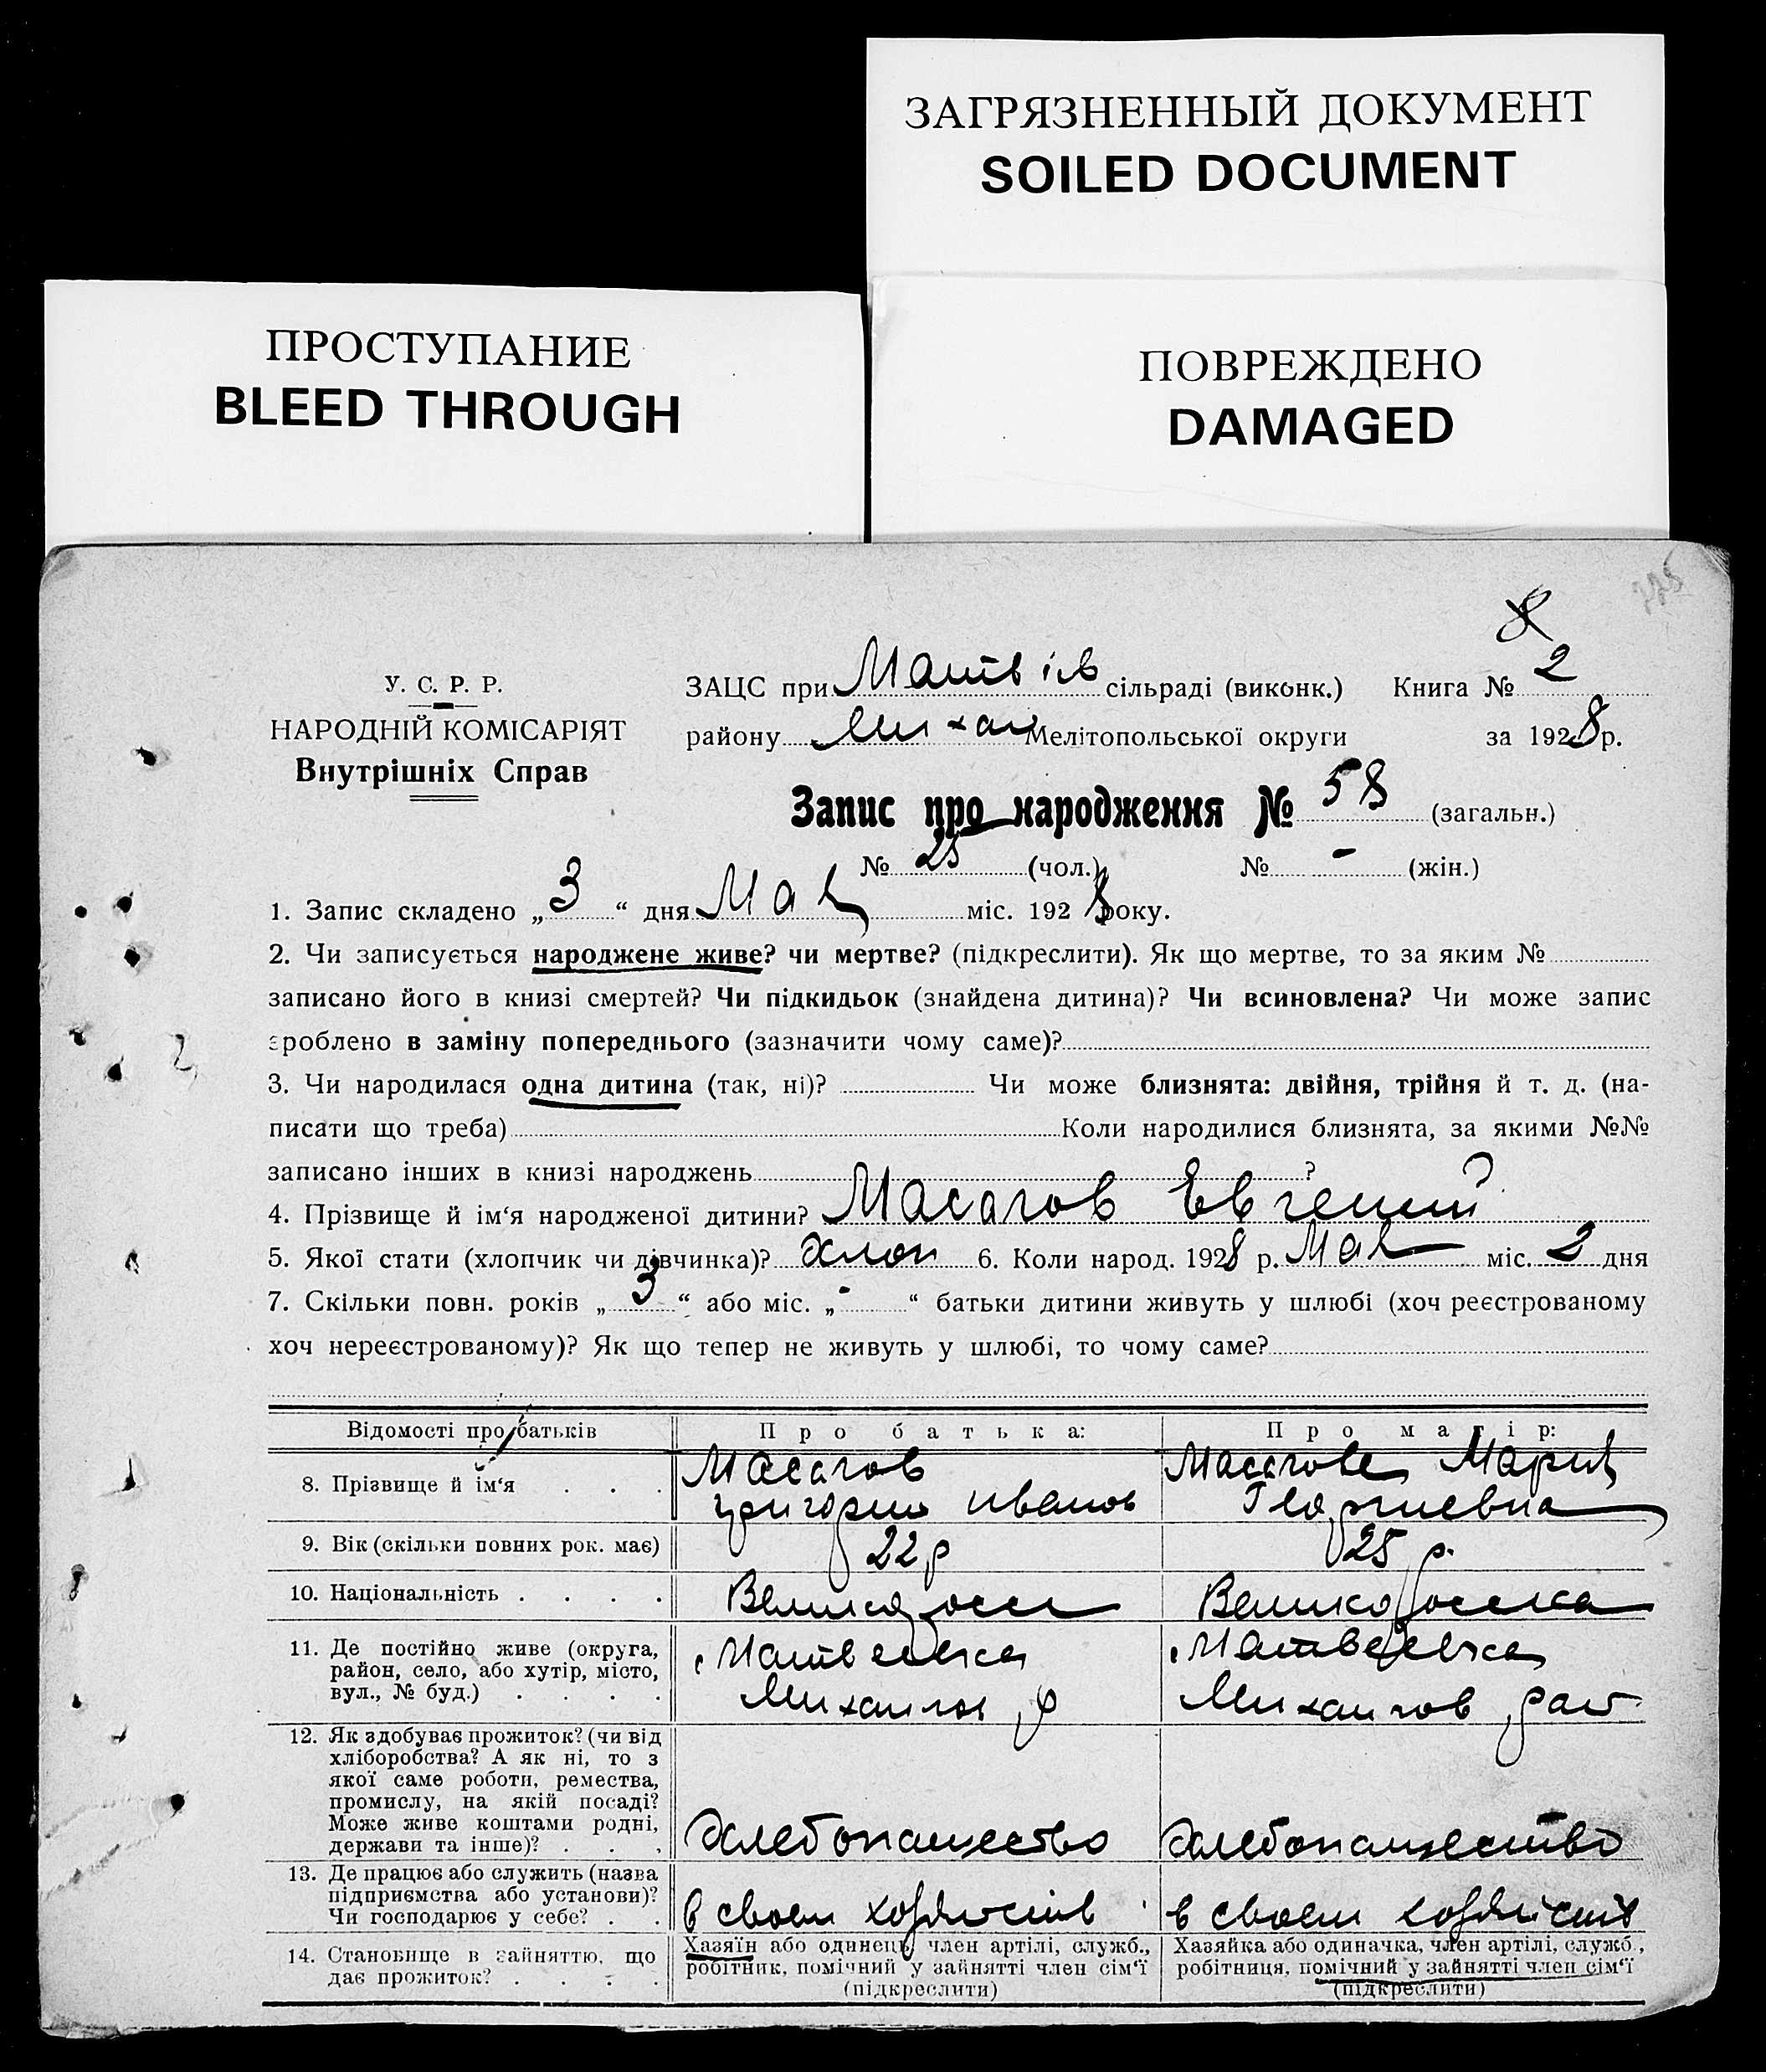 ЗАГРЯЗНЕННЫЙ ДОКУМЕНТ
SOILED DOCUMENT
ПРОСТУПАНИЕ
BLEED THROUGH
ПОВРЕЖДЕНО
DAMAGED
8
У. С. Р. Р.
НАРОДНІЙ КОМІСАРІЯТ
Внутрішніх Справ
ЗАЦС при Матвіїв сільраді (виконк.) Книга № 2
району Михай Мелітопольської округи за 1928 р.
Запис про народження № 58 (загальн.)
№ 25 (чол.) № - (жін.)
1. Запис складено „3“ дня Мая міс. 1928 року.
2. Чи записується народжене живе? чи мертве? (підкреслити). Як що мертве, то за яким №
записано його в книзі смертей? Чи підкидьок (знайдена дитина)? Чи всиновлена? Чи може запис
зроблено в заміну попереднього (зазначити чому саме)?
3. Чи народилася одна дитина (так, ні)? Чи може близнята: двійня, трійня й т. д. (на-
писати що треба) Коли народилися близнята, за якими №№
записано інших в книзі народжень ?
4. Прізвище й ім‘я народженої дитини? Масагов Евгений
5. Якої стати (хлопчик чи дівчинка)? Хлоп 6. Коли народ. 1928 р. Мая міс. 2 дня
7. Скільки повн. років „3“ або міс. „-“ батьки дитини живуть у шлюбі (хоч реєстрованому
хоч нереєстрованому)? Як що тепер не живуть у шлюбі, то чому саме?
Відомості про батьків
Про батька:
Про матір:
8. Прізвище й ім‘я
Масагов
Григорий Иванов
Масагова Мария
Георгиевна
9. Вік (скільки повних рок. має)
22 р
25 р.
10. Національність
Великоросс
Великоросска
11. Де постійно живе (округа,
район, село, або хутір, місто,
вул., № буд.)
Матвеевка
Михайлов р
Матвеевка
Михайлов рай
12. Як здобуває прожиток? (чи від
хліборобства? А як ні, то з
якої саме роботи, ремества,
промислу, на якій посаді?
Може живе коштами родні,
держави та інше)?
Хлебопашество
Хлебопашество
13. Де працює або служить (назва
підприємства або установи)?
Чи господарює у себе?
в своем хозяйств
в своем хозяйств
14. Становище в зайняттю, що
дає прожиток?
Хазяїн або одинець, член артілі, служб.,
робітник, помічний у зайнятті член сім‘ї
(підкреслити)
Хазяйка або одиначка, член артілі, служб.,
робітниця, помічний у зайнятті член сім‘ї
(підкреслити)